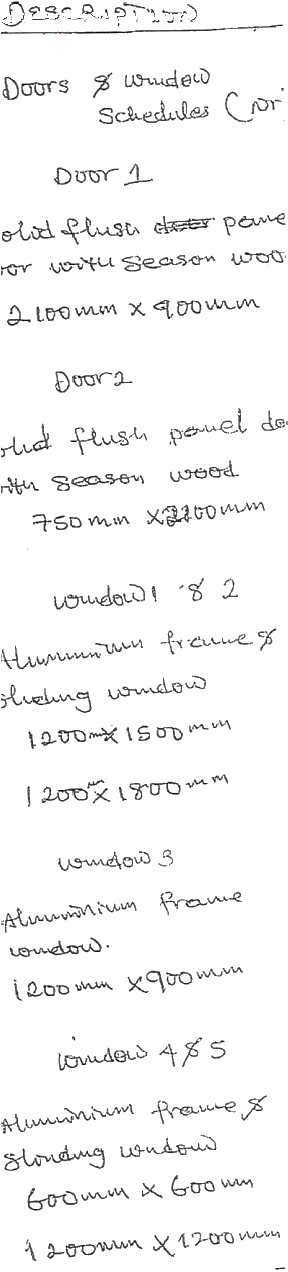 DESCRIPTION
Doors & window
Schedules (
Door 1
olid flush pane
or with season woo
2100mm x 900mm
Door 2
olid flush panel do
ith season wood
750mm x2100mm
window 1 & 2
Aluminium frame &
sliding window
1200mm x 1500mm
1200mm x 1800mm
window 3
Aluminium frame
window.
1200mm x 900mm
window 4 & 5
Aluminium frame &
Slinding window
600mm x 600mm
1200mm x 1200mm